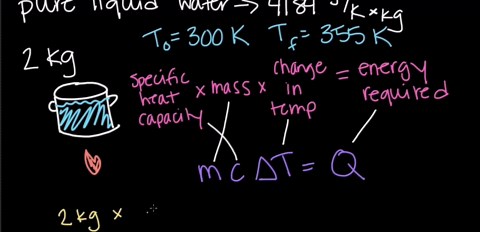 pure liquid water → 4184 J/K×kg
T₀ = 300 K T_f = 355 K
2 kg
specific heat capacity × mass × change in temp = energy required
m c ΔT = Q
2 kg ×